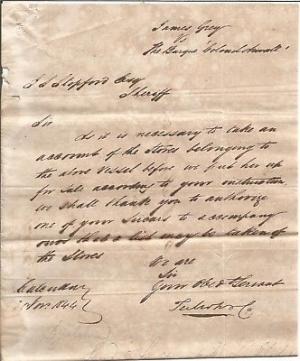 James Grey
vs
The Barque Colonel
J S Stopford Esq
Sheriff
Sir
As it is necessary to take an
account of the Stores belonging to
the above Vessel before we put her up
for Sale according to your instruction,
we shall thank you to authorize
one of your Sircars to accompany
ours that a list may be taken of
the Stores
We are
Sir
Your Obedt Servant
Calcutta
Nov 1844
& Co